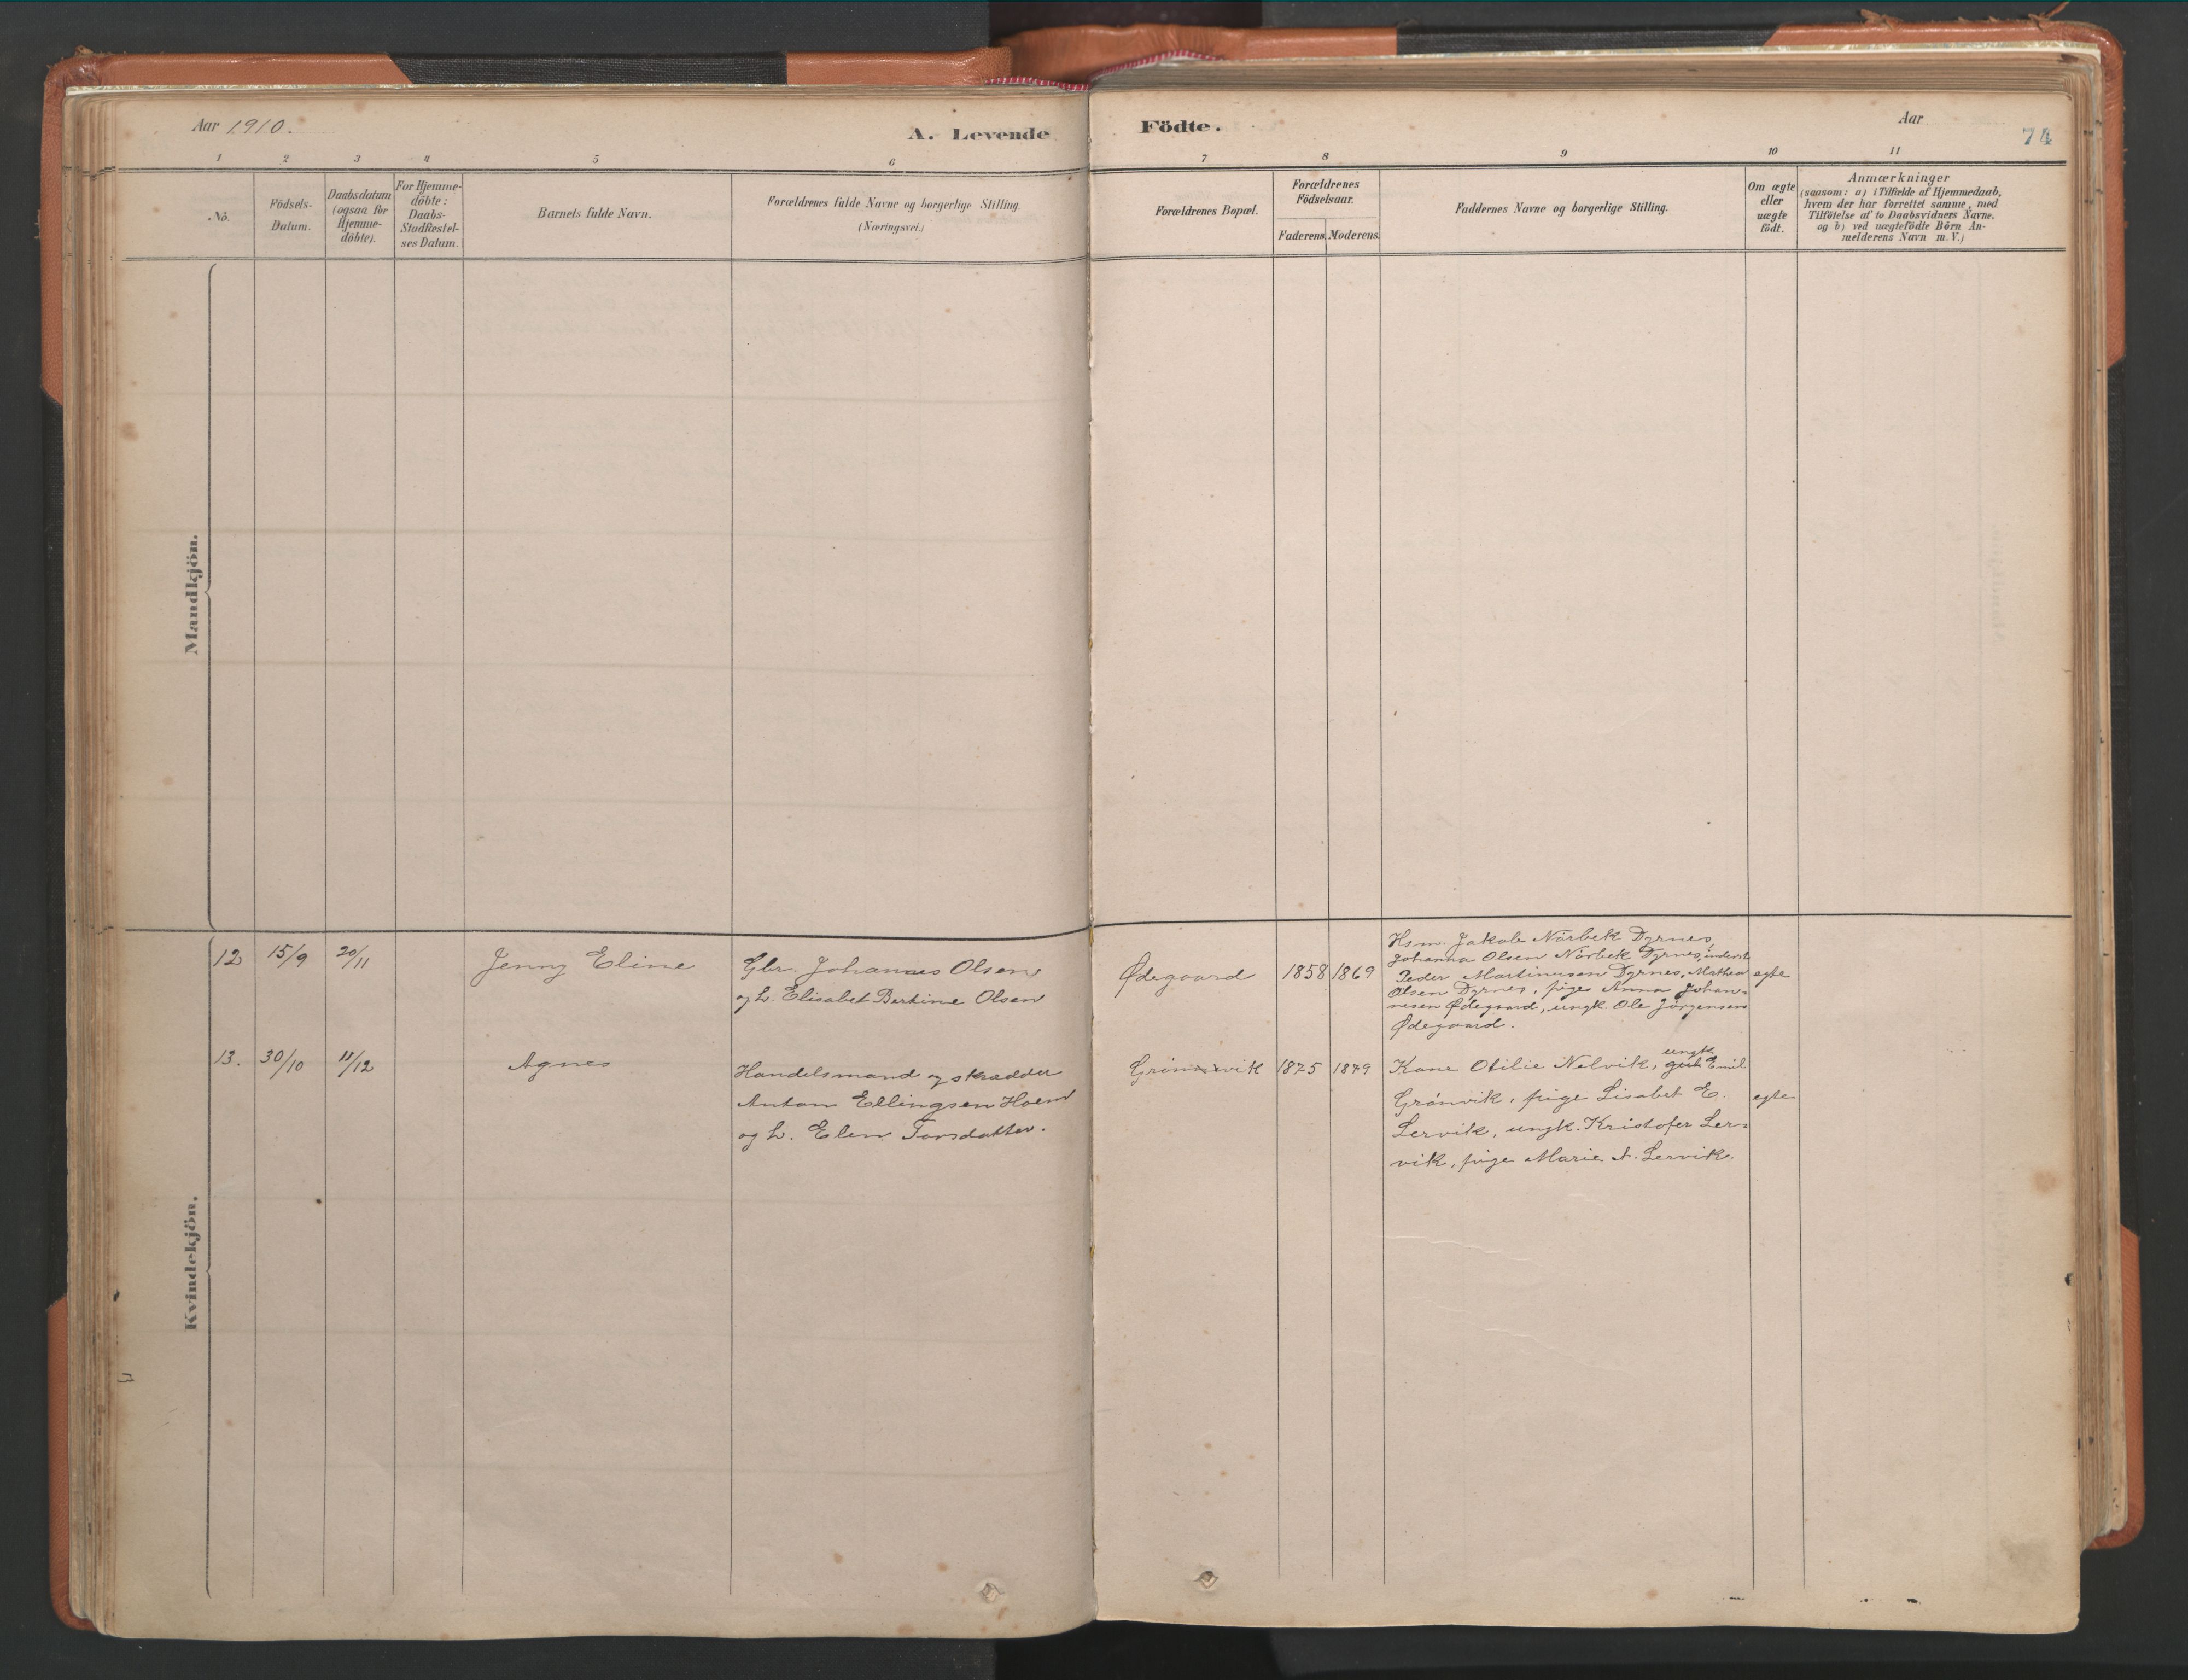 Aar 1910.
A. Levende Födte.
Aar
74
1 2 3 4 5 6 7 8 9 10 11
No.
Födsels-
Datum.
Daabsdatum
(ogsaa for
Hjemme-
döbte).
For Hjemme-
döbte:
Daabs-
Stadfæstel-
ses Datum.
Barnets fulde Navn.
Forældrenes fulde Navne og borgerlige Stilling.
(Næringsvei.)
Forældrenes Bopæl.
Forældrenes
Födselsaar.
Faderens. Moderens.
Faddernes Navne og borgerlige Stilling.
Om ægte
eller
uægte
födt.
Anmærkninger
(saasom: a) i Tilfælde af Hjemmedaab,
hvem der har forrettet samme, med
Tilföielse af to Daabsvidners Navne.
og b) ved uægtefödte Börn An-
melderens Navn m.V.)
Mandkjön.
Kvindekjön.
12 15/9 20/11
Jenny Eline
Gbr. Johannes Olsen
og h. Elisabet Berline Olsen
Ødegaard
1858 1869
Hsm. Jakob Nørbek Dyrnes,
Johanna Olsen Nørbek Dyrnes, inderst
Peder Martinusen Dyrnes, Mathea
Olsen Dyrnes, pige Anna Johan=
nesen Ødegaard, ungk. Ole Jørgensen
Ødegaard.
egte
13. 30/10 11/12
Agnes
Handelsmand og skrædder
Anton Ellingsen Hoem
og h. Elen Torsdatter.
Grønvik
1875 1879
Kone Otilie Nelvik, ungk. Emil
Grønvik, pige Lisabet E.
Lervik, ungk. Kristofer Ler=
vik, pige Marie A. Lervik.
egte